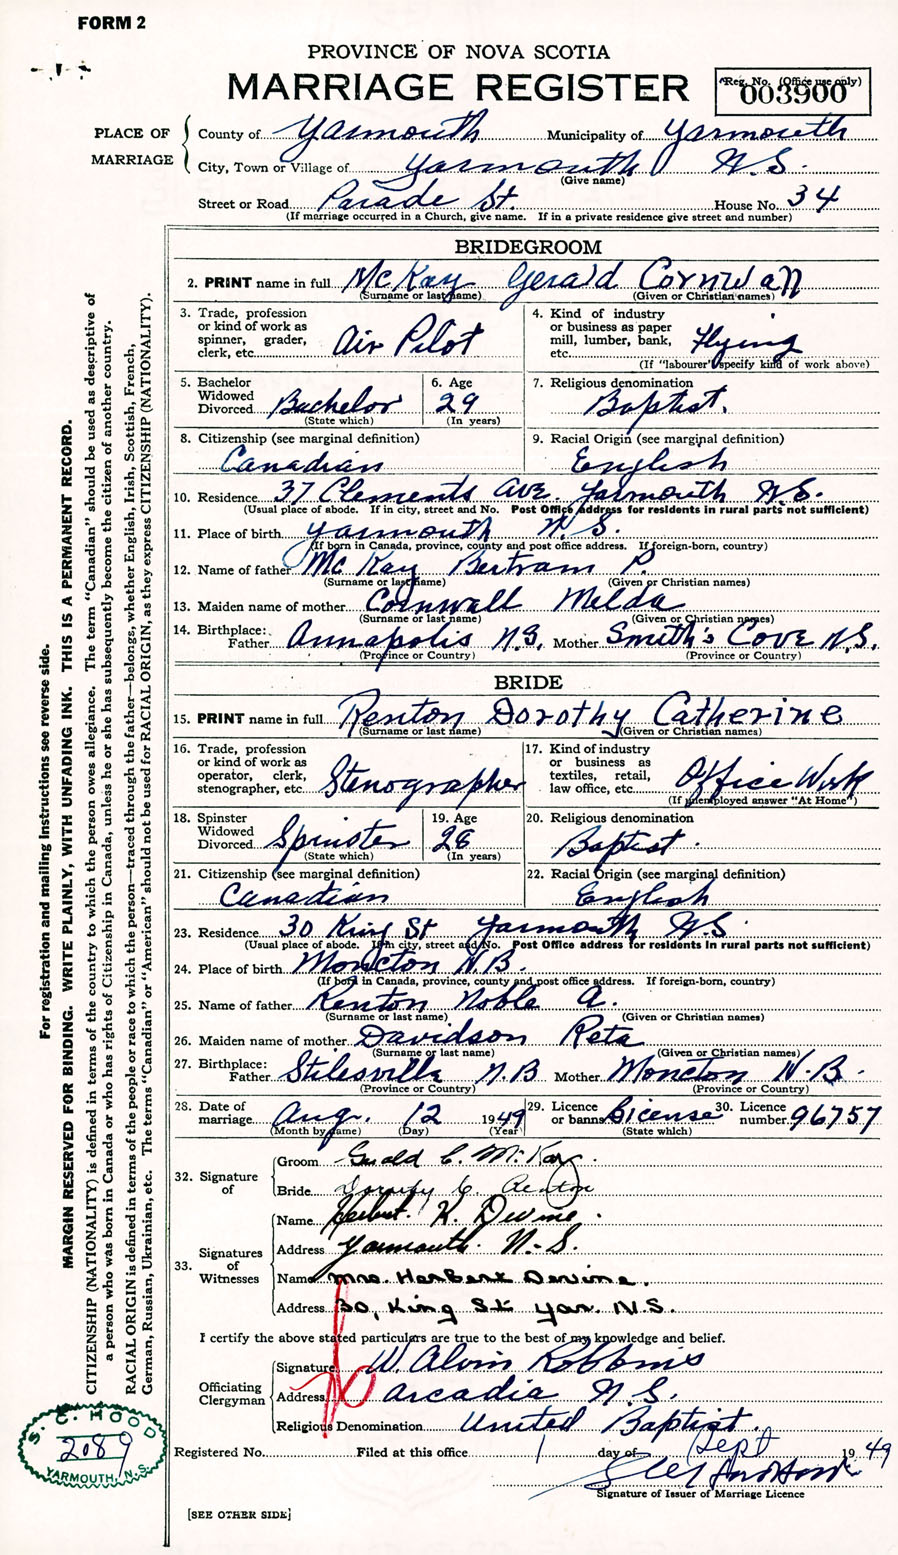 FORM 2
PROVINCE OF NOVA SCOTIA
MARRIAGE REGISTER
Reg. No. (Office use only)
003900
PLACE OF MARRIAGE
County of Yarmouth Municipality of Yarmouth
City, Town or Village of Yarmouth N.S.
(Give name)
Street or Road Parade St. House No. 34
(If marriage occurred in a Church, give name. If in a private residence give street and number)
BRIDEGROOM
2. PRINT name in full McKay Gerald Cornwall
(Surname or last name) (Given or Christian names)
3. Trade, profession or kind of work as spinner, grader, clerk, etc. Air Pilot
4. Kind of industry or business as paper mill, lumber, bank, etc. Flying
(If "labourer" specify kind of work above)
5. Bachelor Widowed Divorced Bachelor
(State which)
6. Age 29
(In years)
7. Religious denomination Baptist.
8. Citizenship (see marginal definition) Canadian
9. Racial Origin (see marginal definition) English
10. Residence 37 Clements Ave. Yarmouth N.S.
(Usual place of abode. If in city, street and No. Post Office address for residents in rural parts not sufficient)
11. Place of birth Yarmouth N.S.
(If born in Canada, province, county and post office address. If foreign-born, country)
12. Name of father McKay Bertram P.
(Surname or last name) (Given or Christian names)
13. Maiden name of mother Cornwall Melda
(Surname or last name) (Given or Christian names)
14. Birthplace: Father Annapolis N.S. Mother Smith's Cove N.S.
(Province or Country) (Province or Country)
BRIDE
15. PRINT name in full Renton Dorothy Catherine
(Surname or last name) (Given or Christian names)
16. Trade, profession or kind of work as operator, clerk, stenographer, etc. Stenographer
17. Kind of industry or business as textiles, retail, law office, etc. Office Work
(If unemployed answer "At Home")
18. Spinster Widowed Divorced Spinster
(State which)
19. Age 28
(In years)
20. Religious denomination Baptist.
21. Citizenship (see marginal definition) Canadian
22. Racial Origin (see marginal definition) English
23. Residence 30 King St Yarmouth N.S.
(Usual place of abode. If in city, street and No. Post Office address for residents in rural parts not sufficient)
24. Place of birth Moncton N.B.
(If born in Canada, province, county and post office address. If foreign-born, country)
25. Name of father Renton Noble A.
(Surname or last name) (Given or Christian names)
26. Maiden name of mother Davidson Reta
(Surname or last name) (Given or Christian names)
27. Birthplace: Father Stilesville N.B Mother Moncton N.B.
(Province or Country) (Province or Country)
28. Date of marriage Aug. 12 1949
(Month by name) (Day) (Year)
29. Licence or banns License
(State which)
30. Licence number 96757
32. Signature of
Groom Gerald C. McKay.
Bride Dorothy C Renton
33. Signatures of Witnesses
Name Herbert K. Devine.
Address Yarmouth. N.S.
Name Mrs. Herbert Devine.
Address 30, King St Yar. N.S.
I certify the above stated particulars are true to the best of my knowledge and belief.
Officiating Clergyman
Signature W. Alvin Robbins
Address Arcadia N.S.
Religious Denomination United Baptist.
Registered No. Filed at this office 1 day of Sept 1949
Signature of Issuer of Marriage Licence
[SEE OTHER SIDE]
S. C. HOOD
2089
YARMOUTH, N.S.
For registration and mailing instructions see reverse side.
MARGIN RESERVED FOR BINDING. WRITE PLAINLY, WITH UNFADING INK. THIS IS A PERMANENT RECORD.
CITIZENSHIP (NATIONALITY) is defined in terms of the country to which the person owes allegiance. The term "Canadian" should be used as descriptive of
a person who was born in Canada or who has rights of Citizenship in Canada, unless he or she has subsequently become the citizen of another country.
RACIAL ORIGIN is defined in terms of the people or race to which the person—traced through the father—belong, whether English, Irish, Scottish, French,
German, Russian, Ukrainian, etc. The terms "Canadian" or "American" should not be used for RACIAL ORIGIN, as they express CITIZENSHIP (NATIONALITY).